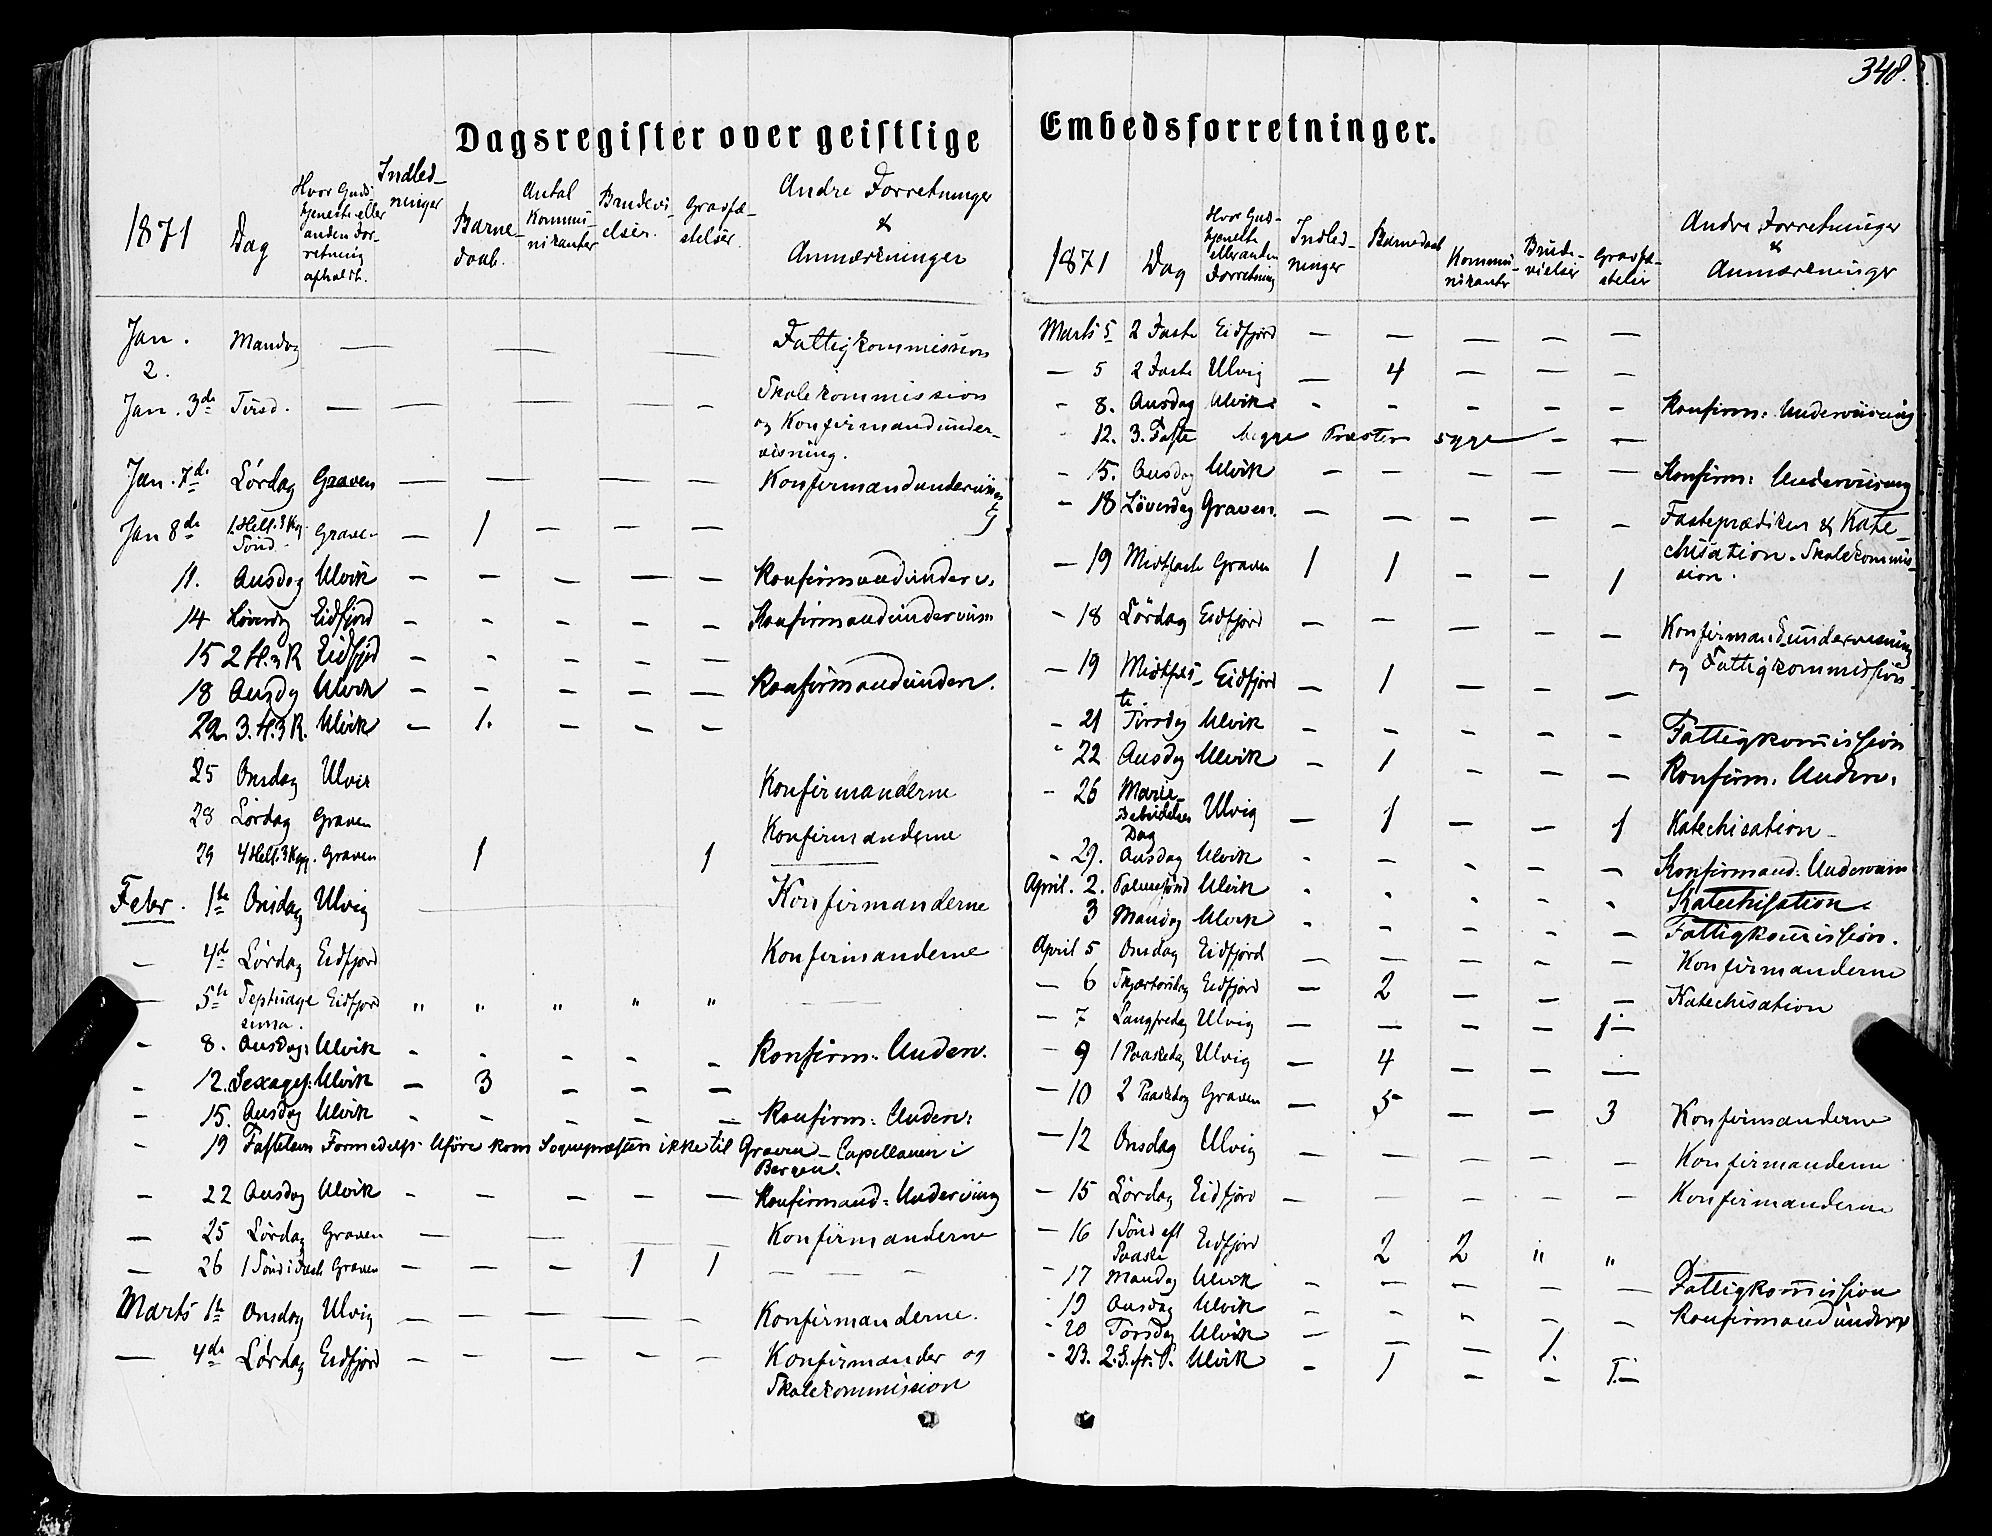 348.
Dagsregister over geistlige Embedsforretninger.
1871 Dag Hvor Guds- tjeneste eller anden For- retning afholdt. Indled- ninger Barne- daab. Antal Kommu- nikanter Brudevi- elser. Gravfæ- stelser. Andre Forretninger & Anmærkninger
Jan. 2. Mandag — — — Fattigkommission
Jan. 3de Tirsd. — — — — — Skolekommission
og Konfirmandunder-
visning.
Jan. 7de Lørdag Graven — — — — — Konfirmandundervisning
Jan 8de 1. Hell. 3 Kg. Sønd. Graven — 1 — — —
11. Onsdag Ulvik — — — — — Konfirmandunderv.
14 Løverdg Eidfjord — — — — — Konfirmandundervisn
15 2 H. 3 K Eidfjd — — — — —
18 Onsdg Ulvik — — — — — Konfirmandunderv.
22. 3. H. 3 K. Ulvik — 1. — — —
25 Onsdag Ulvik Konfirmanderne
28 Lørdag Graven Konfirmanderne
29 4 Hell. 3 Kg. Graven 1 1 —
Febr. 1te Onsdag Ulvig — Konfirmanderne
— 4de Lørdag Eidfjord Konfirmanderne
— 5te Septuage sima. Eidfjord " " " " " —
- 8. Onsdag: Ulvik - - - - - Konfirm: Underv.
- 12. Sexages: Ulvik — 3 — — —
- 15. Onsdag Ulvik - - - - — Konfirm: Underv:
- 19 Fastelavn Formedelst Uføre kom Sognepræsten ikke til Graven – Capellanen i
Bergen.
- 22 Onsdag Ulvik - — — — — Konfirmand: Undervisning
— 25 Lørdag Graven — — — — Konfirmanderne
— 26 1 Sønd i Faste Graven — — — 1 1 — — —
Marts 1te Onsdag Ulvig — — — — — Konfirmanderne.
— 4de Lørdag Eidfjord — — — — — Konfirmander og
Skolekommission
1871 Dag Hvor Gud- tjeneste eller anden Forretning Indled- ninger Barnedaab Kommu- nikanter Brude- vielser Gravfæ- stelser Andre Forretninger & Anmærkninger
Marts 5 2 Faste Eidfjord — — — — —
— 5 2 Faste Ulvig — 4 — — —
- 8. Onsdag Ulvik. - - - - — Konfirm: Undervisning
- 12. 3. Faste begge Præster syge — —
- 15. Onsdag Ulvik — — — — — Konfirm: Undervisning
- 18 Løverdag Graven. — — — — — Fasteprædiken & Kate-
chisation. Skolekommis-
sion.
— 19 Midtfaste Graven 1 1 — — 1
- 18 Lørdag Eidfjord — — — — — Konfirmandundervisning
og Fattigkommission
— 19 Midtfas- te. Eidfjord — 1 — — —
- 21 Tirsdag Ulvik — - - - — Fattigkommission
- 22 Onsdag Ulvik - 1 - — — Konfirm: Underv:
- 26 Mariæ Bebudelses Dag Ulvig — 1 — — 1 Katechisation —
- 29. Onsdag Ulvik - — - - — Konfirmand: Undervisn
April. 2. Palmesønd Ulvik - - - - - Katechisation.
3 Mandag Ulvik - - - - — Fattigkommission.
April 5 Onsdag Eidfjord — — — — — Konfirmanderne
— 6 Skjærtorsdag Eidfjord — 2 — — — Katechisation
— 7 Langfredag Ulvig — — — — 1—
— 9 1 Paaskedag Ulvig — 4 — — —
— 10 2 Paaskedag Graven — 5 — — 3 Konfirmanderne
— 12 Onsdag Ulvig — — — — — Konfirmanderne
— 15 Lørdag Eidfjord — — — — — Konfirmanderne
— 16 1 Sønd eft Paaske Eidfjord 2 2 " "
- 17 Mandag Ulvik - — — — — Fattigkommission
- 19 Onsdag Ulvik - - - - — Konfirmandunderv
- 20 Torsdag Ulvik — — — 1.
- 23. 2. S. eft. P. Ulvik - 1 — — 1.—